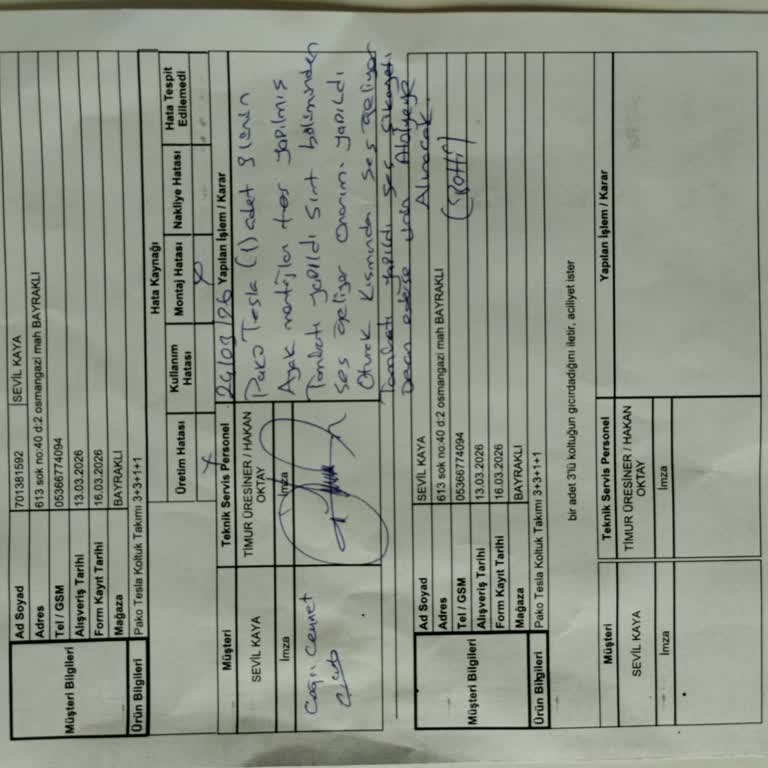 Müşteri Bilgileri
Ad Soyad 701381592 SEVİL KAYA
Adres 613 sok no:40 d:2 osmangazi mah BAYRAKLI
Tel / GSM 05366774094
Alışveriş Tarihi 13.03.2026
Form Kayıt Tarihi 16.03.2026
Mağaza BAYRAKLI
Ürün Bilgileri Pako Tesla Koltuk Takımı 3+3+1+1
Hata Kaynağı
Üretim Hatası Kullanım Hatası Montaj Hatası Nakliye Hatası Hata Tespit Edilemedi
x x
Müşteri Teknik Servis Personel 24/03/26 Yapılan İşlem / Karar
SEVİL KAYA TİMUR ÜRESİNER / HAKAN OKTAY
İmza İmza
Pako Tesla (1) adet 3 lünün
Ayak montajları ters yapılmış
Tamiratı yapıldı Sırt bölümünden
Ses geliyor Onarımı yapıldı
Oturak Kısmında Ses geliyor
Tamiratı yapıldı ses şikayeti
Devam ederse ürün Atölyeye
Alınacak.
Müşteri Bilgileri
Ad Soyad SEVİL KAYA
Adres 613 sok no:40 d:2 osmangazi mah BAYRAKLI
Tel / GSM 05366774094
Alışveriş Tarihi 13.03.2026
Form Kayıt Tarihi 16.03.2026
Mağaza BAYRAKLI
Ürün Bilgileri Pako Tesla Koltuk Takımı 3+3+1+1
bir adet 3'lü koltuğun gıcırdadığını iletir, aciliyet ister
Müşteri Teknik Servis Personel Yapılan İşlem / Karar
SEVİL KAYA TİMUR ÜRESİNER / HAKAN OKTAY
İmza İmza